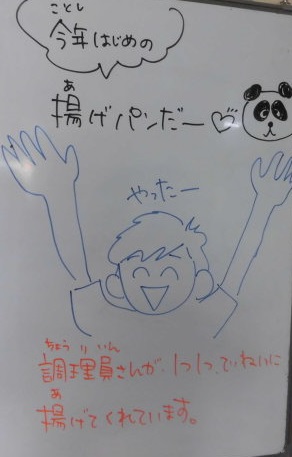 ことし
今年はじめの
あ
揚げパンだー♡
やったー
ちょうりいん
調理員さんが、1つ1つ、ていねいに
あ
揚げてくれています。